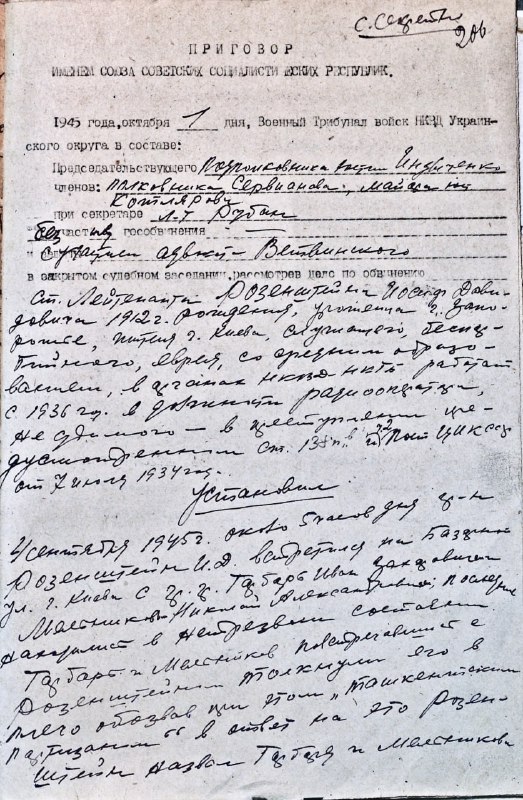 С. Секретно
206
ПРИГОВОР
ИМЕНЕМ СОЮЗА СОВЕТСКИХ СОЦИАЛИСТИ ЕСКИХ РЕСПУБЛИК.
1945 года, октября 1 дня, Военный Трибунал войск НКВД Украин-
ского округа в составе:
Председательствующего Подполковника юстии
членов: полковника Сервианова, майора юст
Котлярова
при секретаре Л-т Рубан
без участия гособвинения
с участием адвок. Ветвинского
в закрытом судебном заседании, рассмотрев дело по обвинению
Ст. Лейтенанта Розенштейна Иосифа Дави-
довича 1912 г. рождения, уроженца г. Запо-
рожье, жителя г. Киева, служащего, беспар-
тийного, еврея, со средним образо-
ванием, в органах НКВД НКГБ работает
с 1936 год. в должности радиооператора,
не судимого – в преступлении пре-
дусмотренном ст. Пост ЦИК СССР
от 7 июля 1934 год.
Установил
4 сентября 1945 г. около 5 часов дня гр-н
Розенштейн И.Д. встретился на
ул. г. Киева с гр. гр. Грабарь Иван
Мельников Николай Александрович, последние
находились в нетрезвом состоянии
Грабарь и Мельников повстречавшись с
Розенштейном толкнули его в
плечо обозвав при этом „Ташкентским
партизаном" в ответ на это Розен-
штейн назвал Грабаря и Мельникова